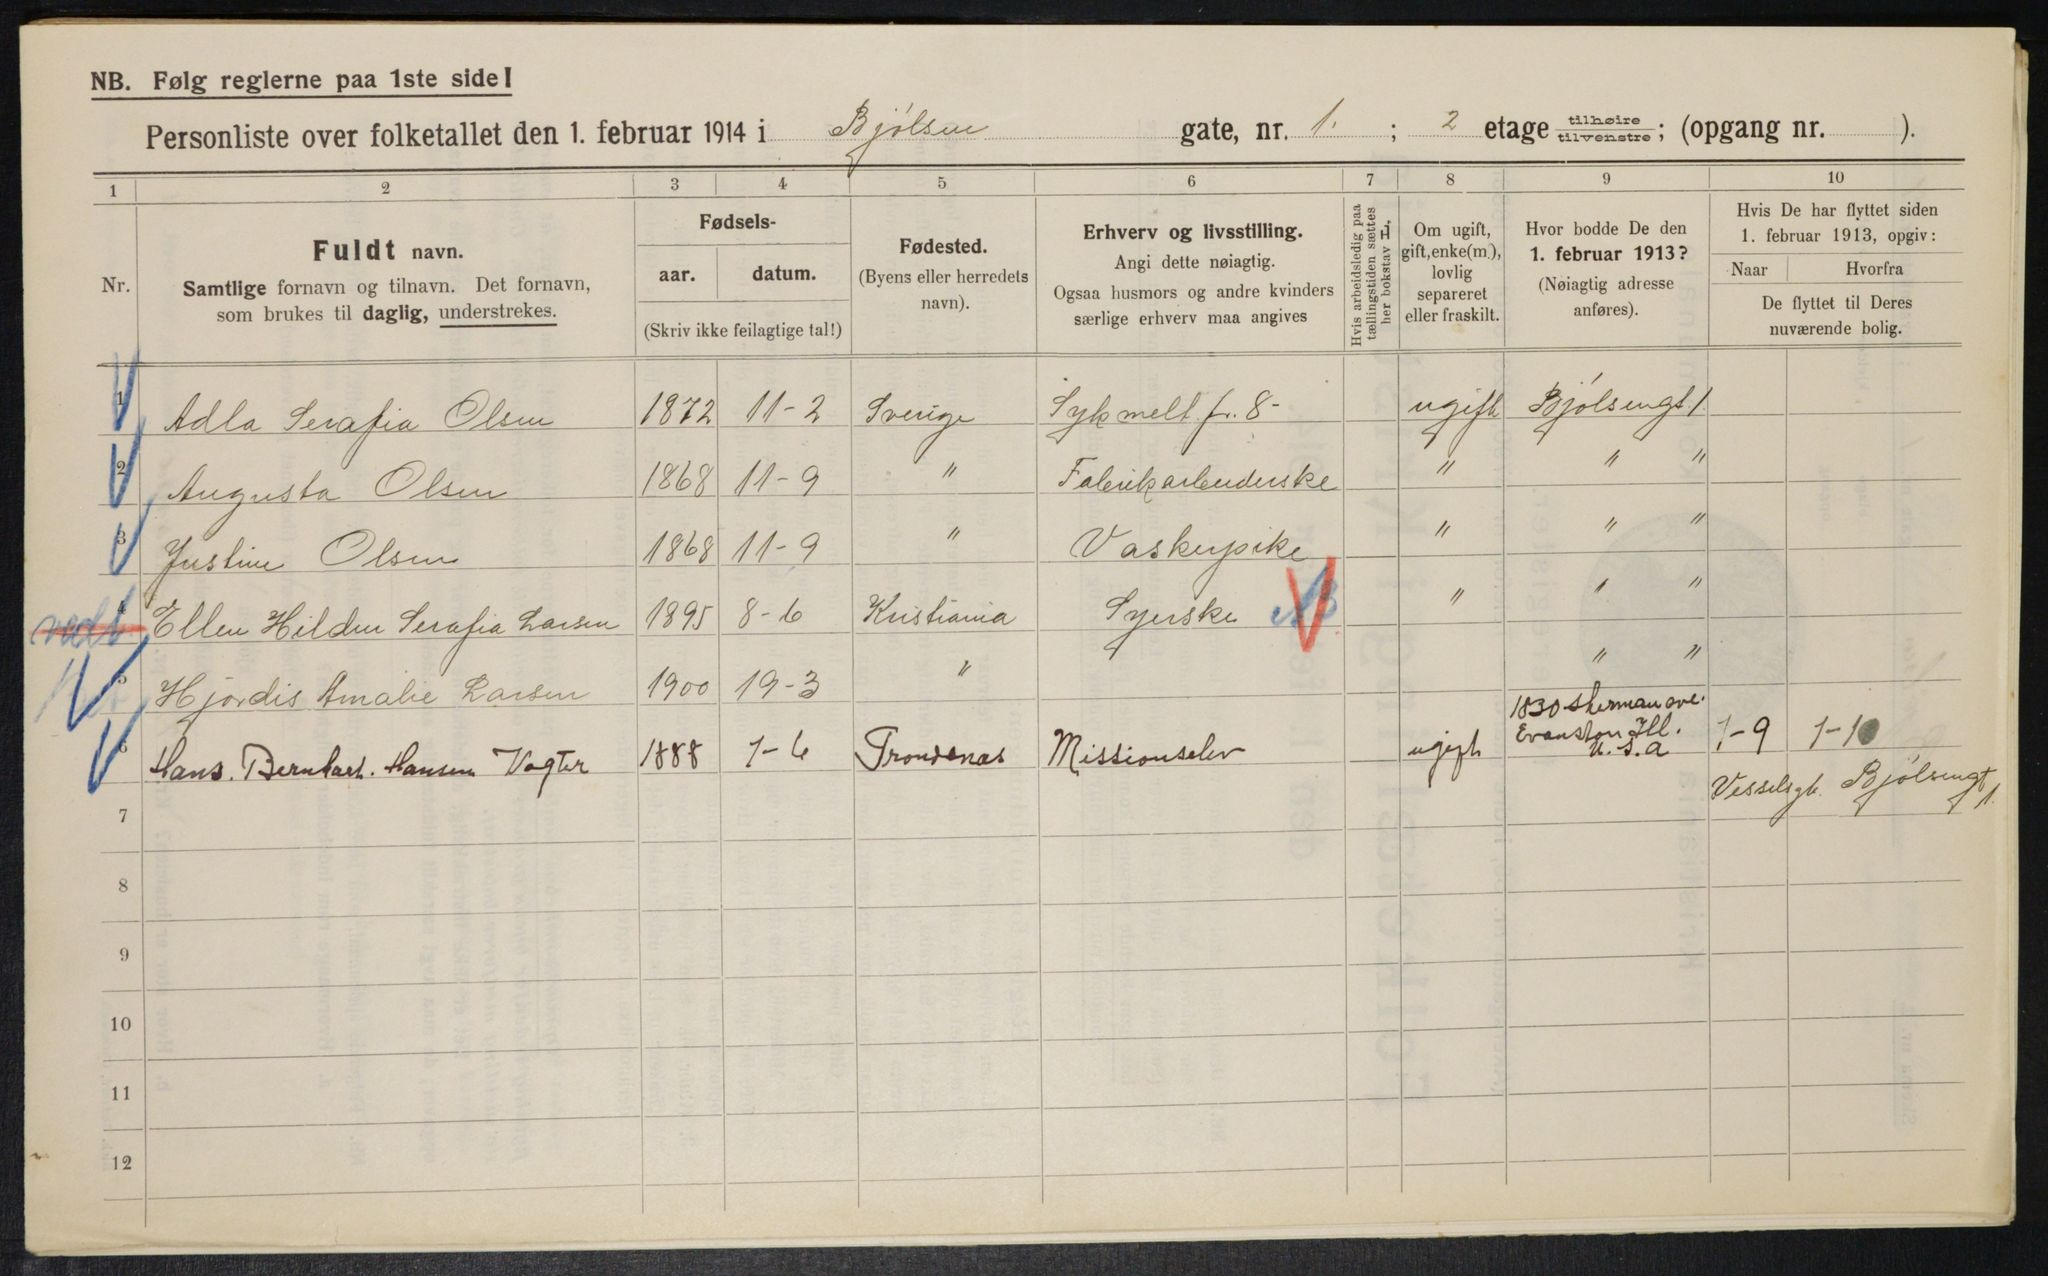 NB. Følg reglerne paa 1ste side!
Personliste over folketallet den 1. februar 1914 i Bjølsen gate, nr. 1. ; 2 etage tilhøire tilvenstre; (opgang nr. ).
1 2 3 4 5 6 7 8 9 10
Nr.
Fuldt navn.
Samtlige fornavn og tilnavn. Det fornavn,
som brukes til daglig, understrekes.
Fødsels-
aar. datum.
(Skriv ikke feilagtige tal!)
Fødested.
(Byens eller herredets
navn).
Erhverv og livsstilling.
Angi dette nøiagtig.
Ogsaa husmors og andre kvinders
særlige erhverv maa angives
Hvis arbeidsledig paa
tællingstiden sættes
her bokstav L.
Om ugift,
gift, enke(m.),
lovlig
separeret
eller fraskilt.
Hvor bodde De den
1. februar 1913?
(Nøiagtig adresse
anføres).
Hvis De har flyttet siden
1. februar 1913, opgiv:
Naar Hvorfra
De flyttet til Deres
nuværende bolig.
1 Adla Serafia Olsen 1872 11-2 Sverige Sykmelt fr. 8- ugift Bjølsengt 1
2 Augusta Olsen 1868 11-9 " Fabrikarbeiderske " " "
3 Justine Olsen 1868 11-9 " Vaskerpike " " "
Ellen Hildur Serafia Larsen 1895 8-6 Kristiania Syerske " " "
5 Hjørdis Amalie Larsen 1900 19-3 " " "
1830 Sherman ave.
6 Hans. Bernhart. Hansen Vogter 1888 7-6 Trondenas Missionselev ugift Evanston Ill. 1-9 1-10
U. S. A
Vesselsgt. Bjølsengt 1.
7
8
9
10
11
12